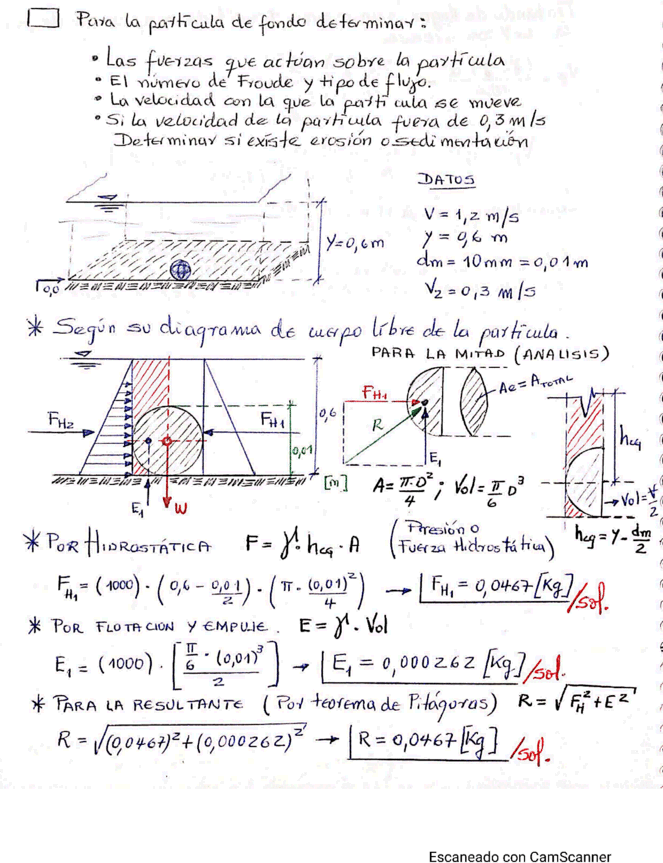 Para la partícula de fondo determinar:
• Las fuerzas que actúan sobre la partícula
• El número de Froude y tipo de flujo.
• La velocidad con la que la partícula se mueve
• Si la velocidad de la partícula fuera de 0,3 m/s
Determinar si existe erosión o sedimentación
DATOS
V = 1,2 m/s
y = 0,6 m
dm = 10mm = 0,01m
V₂ = 0,3 m/s
Y=0,6m
0,0
* Según su diagrama de cuerpo libre de la partícula.
PARA LA MITAD (ANALISIS)
FH2
FH1
0,6
0,01
E1
W
FH1
R
E1
[m]
Ac = ATOTAL
A = πD²/4 ; Vol = π/6 D³
hcg
Vol = V/2
hcg = y - dm/2
* POR HIDROSTÁTICA F = γ · hcg · A (Presión o Fuerza Hidrostática)
FH1 = (1000) · (0,6 - 0,01/2) · (π · (0,01)²/4) → FH1 = 0,0467 [Kg] /sol.
* POR FLOTACION Y EMPUJE. E = γ · Vol
E1 = (1000) · [π/6 · (0,01)³/2] → E1 = 0,000262 [Kg] /sol.
* PARA LA RESULTANTE (Por teorema de Pitágoras) R = √(FH² + E²)
R = √((0,0467)² + (0,000262)²) → R = 0,0467 [Kg] /sol.
Escaneado con CamScanner